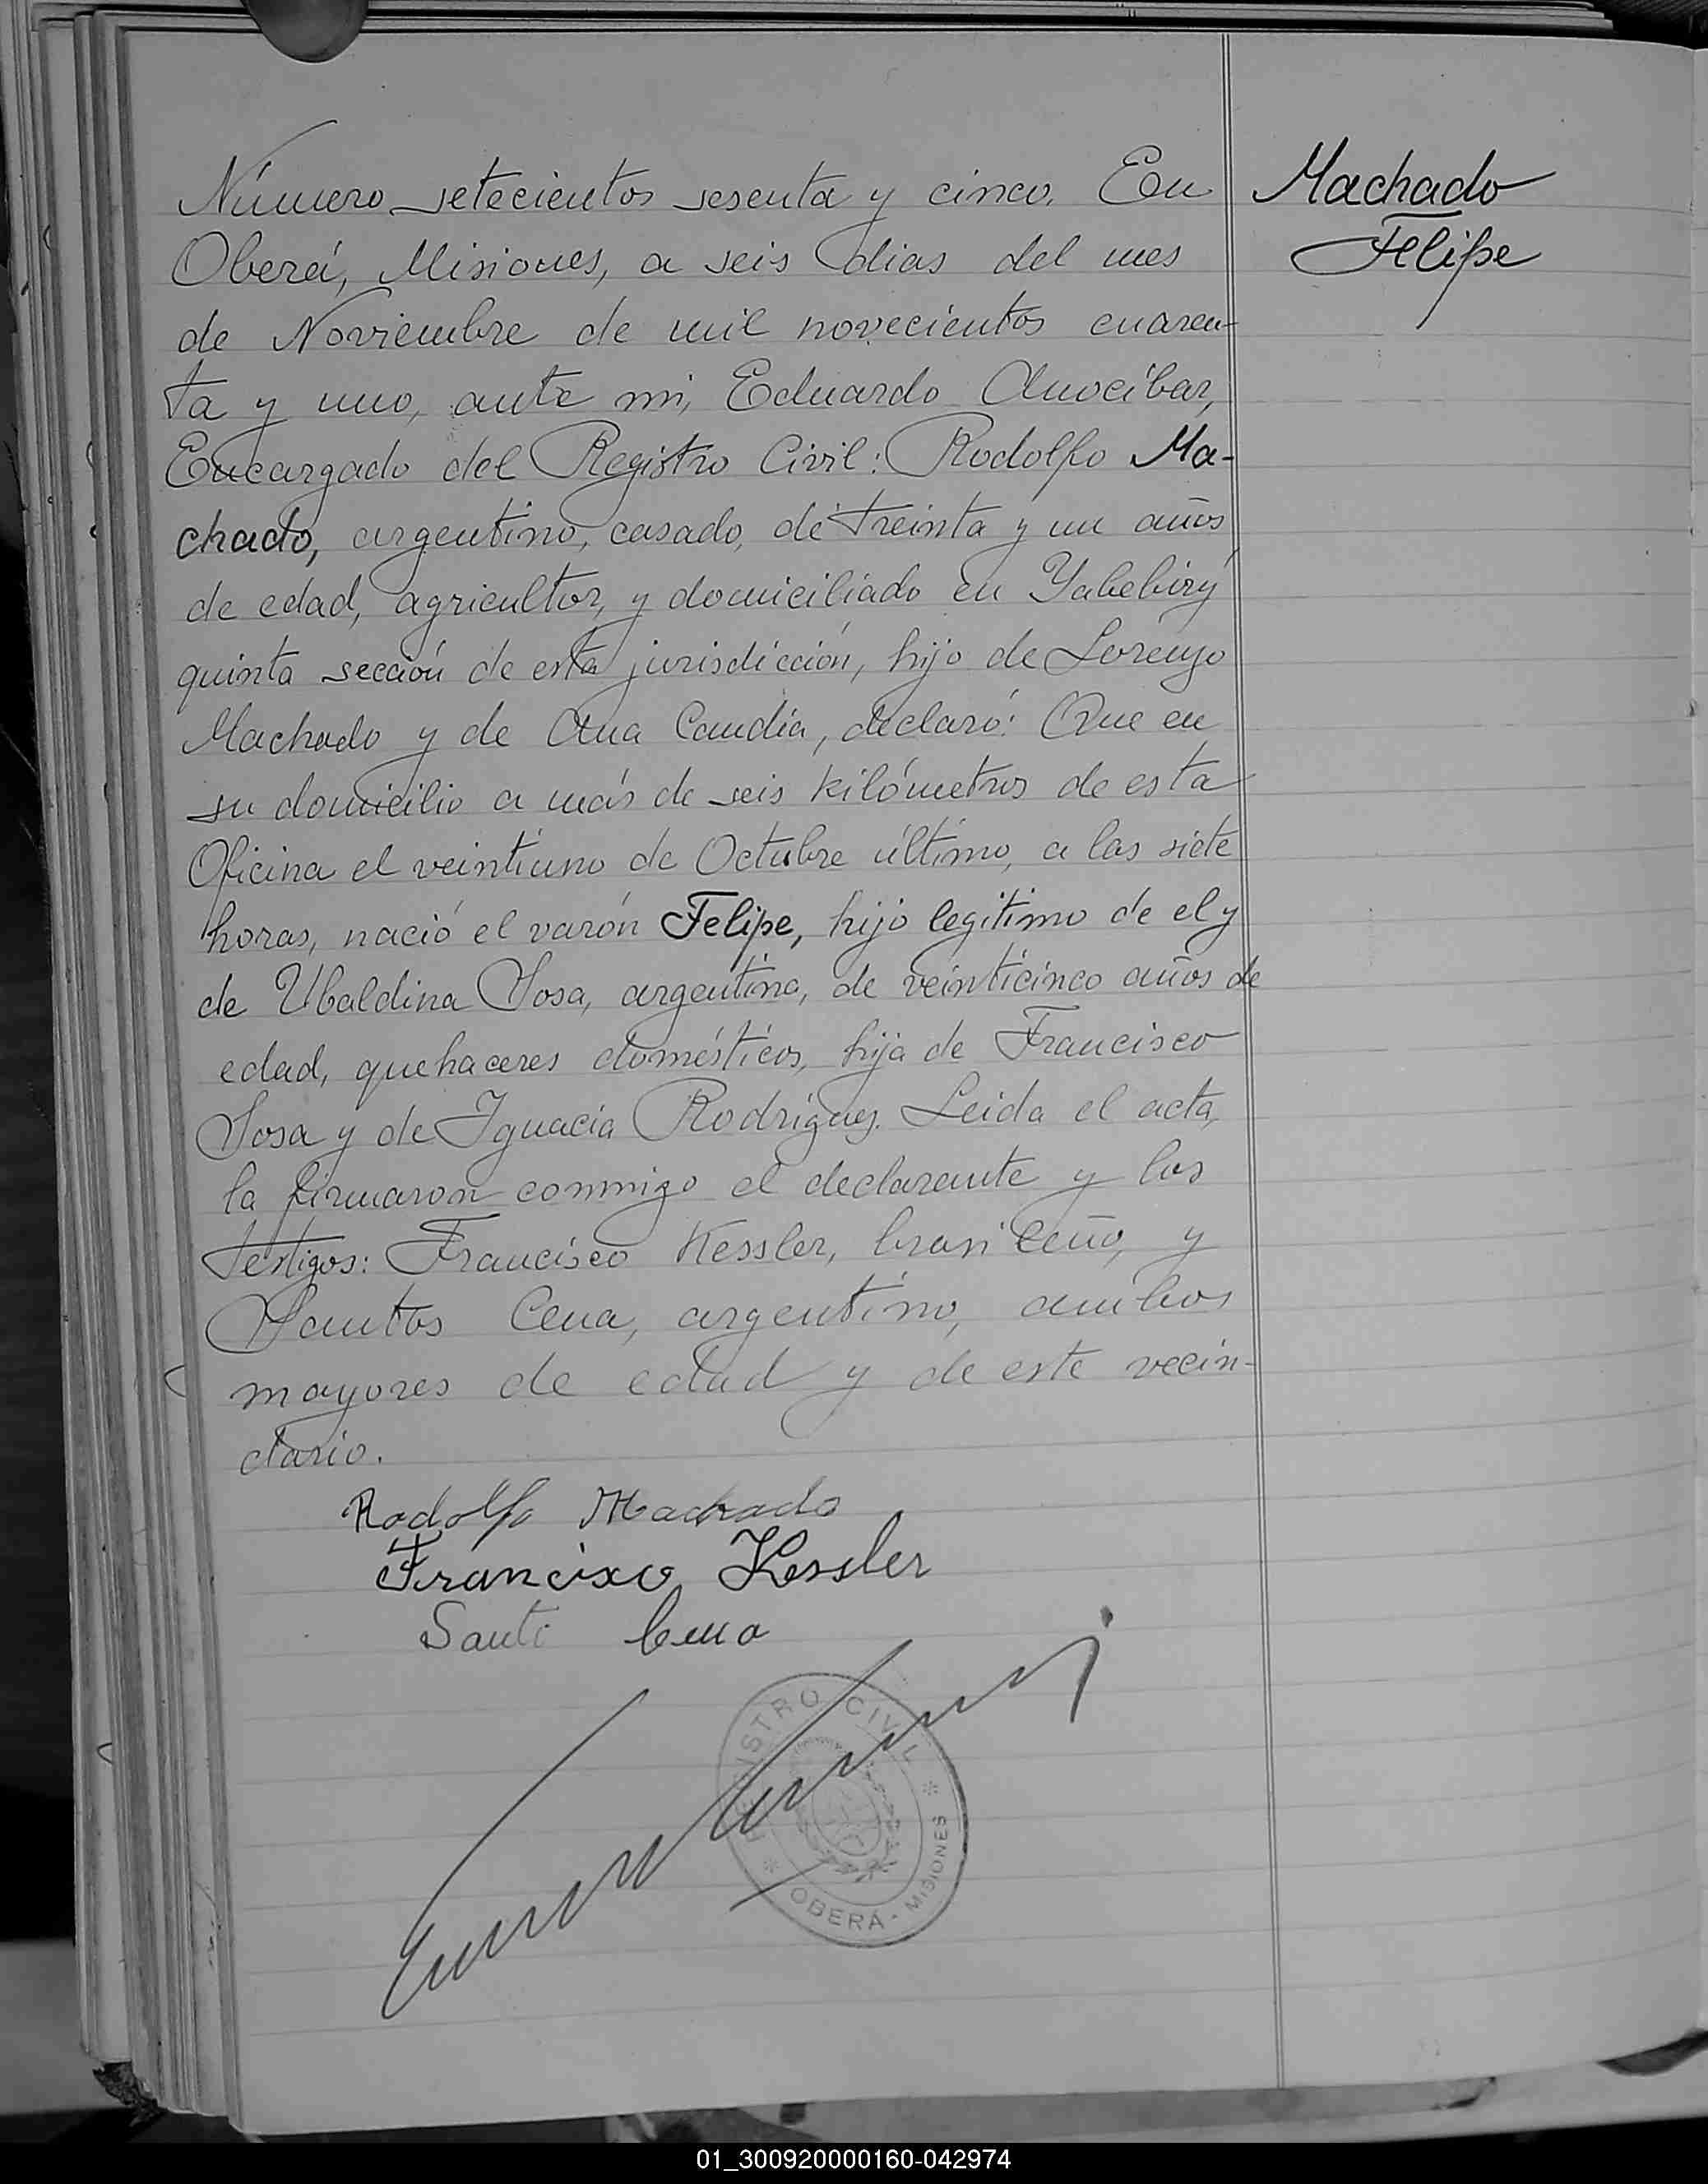 Número setecientos sesenta y cinco. En
Oberá, Misiones, a seis dias del mes
de Noviembre de mil novecientos cuaren-
ta y uno, ante mi, Eduardo Anocibar,
Encargado del Registro Civil: Rodolfo Ma-
chado, argentino, casado, de treinta y un años
de edad, agricultor, y domiciliado en Yabebiry
quinta sección de esta jurisdicción, hijo de Lorenzo
Machado y de Ana Candia, declaró: Que en
su domicilio a más de seis kilómetros de esta
Oficina el veintiuno de Octubre último, a las siete
horas, nació el varón Felipe, hijo legitimo de el y
de Ubaldina Sosa, argentina, de veinticinco años de
edad, quehaceres domésticos, hija de Francisco
Sosa y de Ignacia Rodriguez. Leida el acta,
la firmaron conmigo el declarante y los
testigos: Francisco Kessler, brasileño, y
Santos Cena, argentino, ambos
mayores de edad y de este vecin-
dario.
Machado
Felipe
Rodolfo Machado
Francisco Kessler
Santo Cena
REGISTRO CIVIL
OBERÁ - MISIONES
01_300920000160-042974